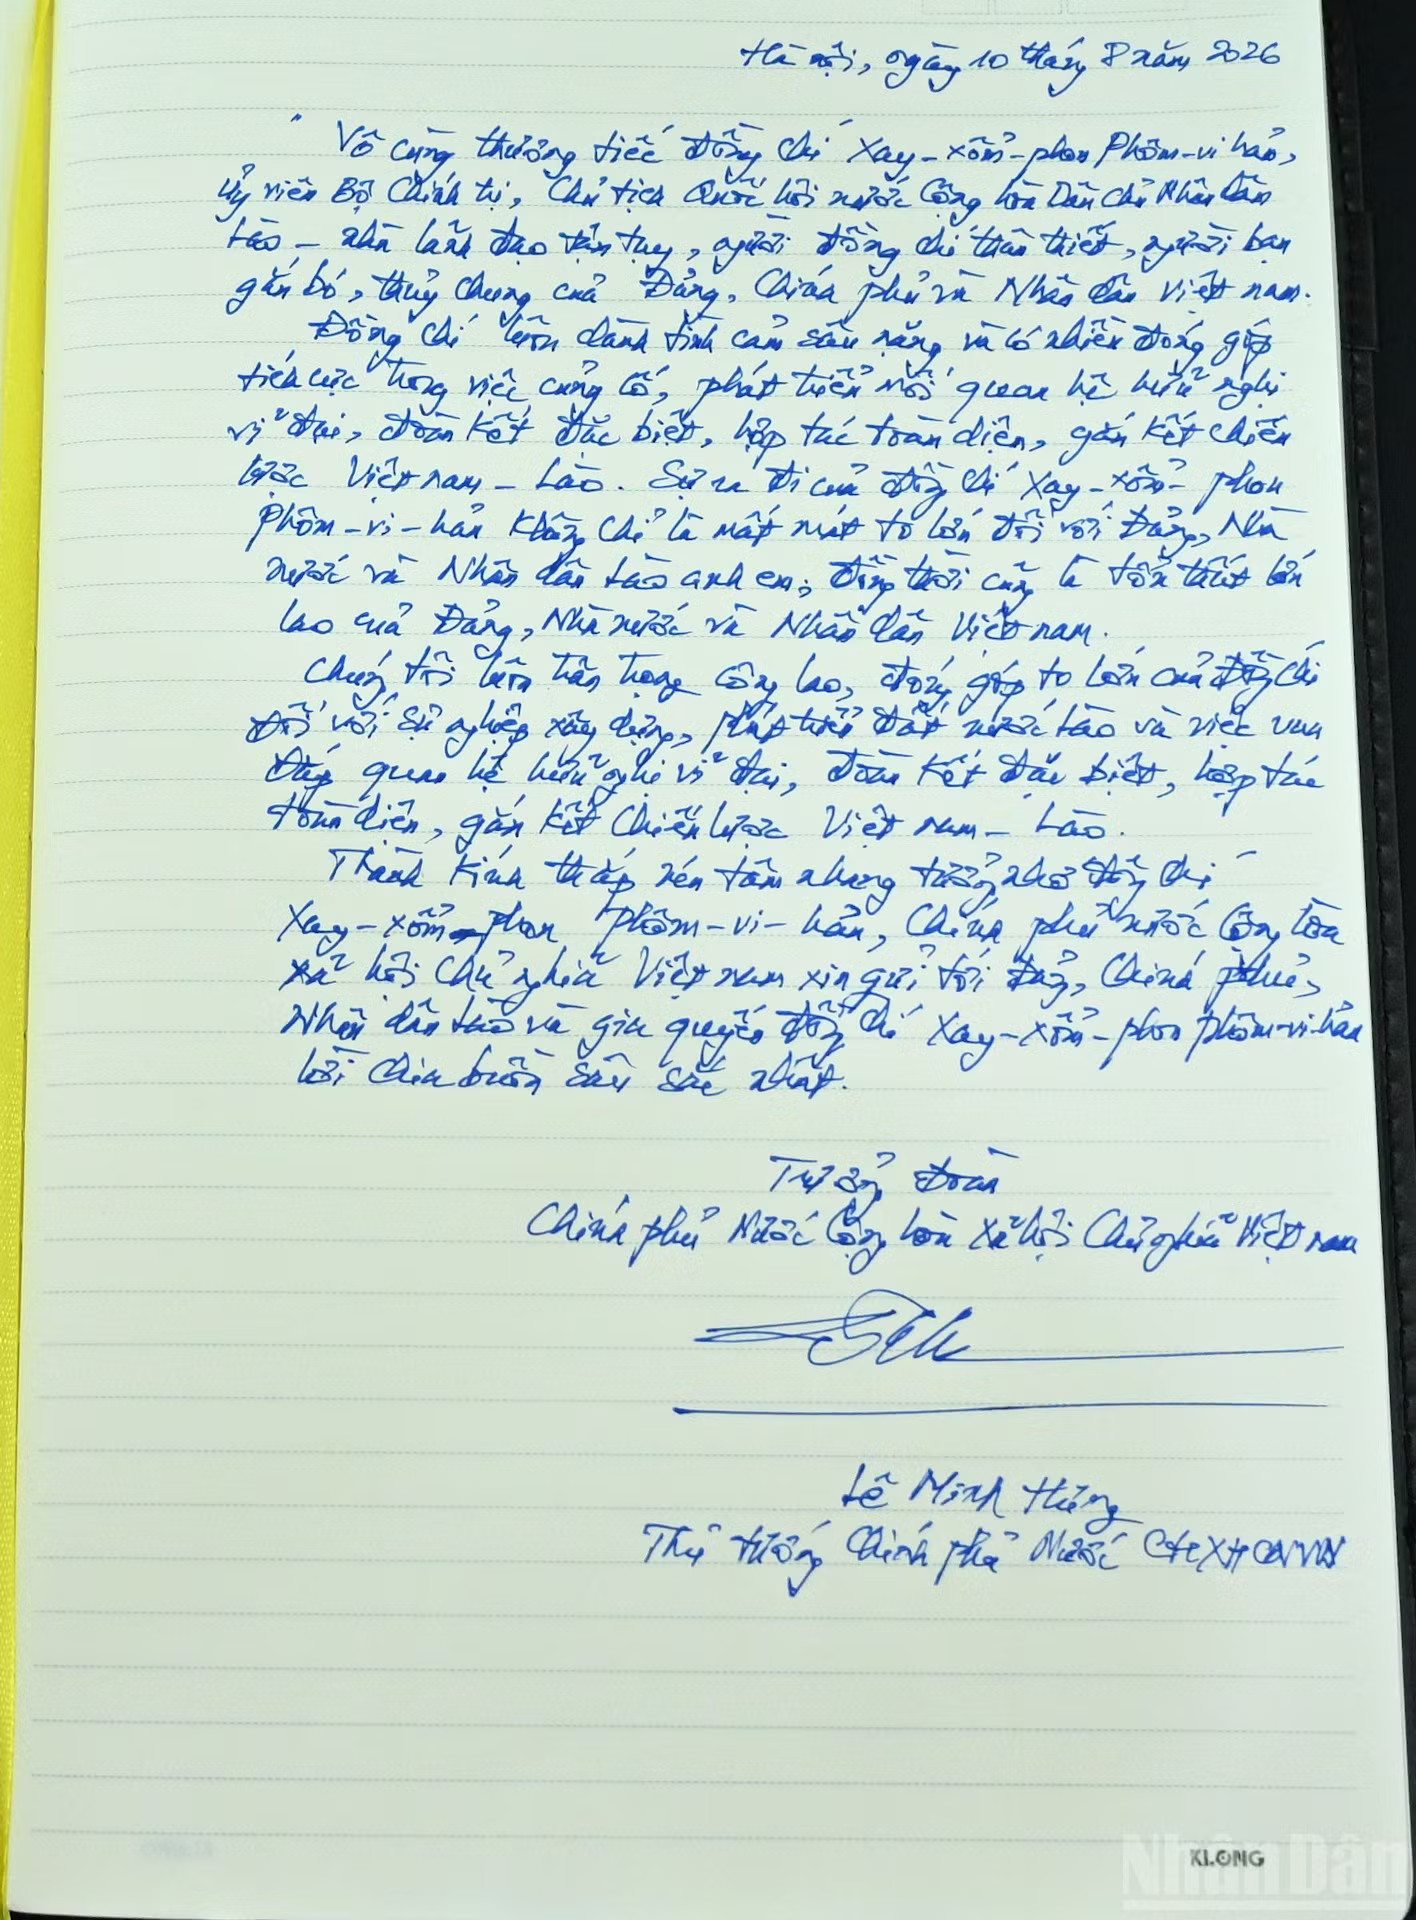 Hà nội, ngày 10 tháng 8 năm 2026
" Vô cùng thương tiếc đồng chí Xay-xổm-phon Phôm-vi hản,
Ủy viên Bộ Chính trị, Chủ tịch Quốc hội nước Cộng hòa Dân chủ Nhân dân
Lào - nhà lãnh đạo tận tụy, người đồng chí thân thiết, người bạn
gắn bó, thủy chung của Đảng, Chính phủ và Nhân dân Việt nam.
Đồng chí luôn dành tình cảm sâu nặng và có nhiều đóng góp
tích cực trong việc củng cố, phát triển mối quan hệ hữu nghị
vĩ đại, đoàn kết đặc biệt, hợp tác toàn diện, gắn kết chiến
lược Việt nam - Lào. Sự ra đi của đồng chí Xay-xổm- phon
Phôm-vi-hản không chỉ là mất mát to lớn đối với Đảng, Nhà
nước và Nhân dân Lào anh em, đồng thời cũng là tổn thất lớn
lao của Đảng, Nhà nước và Nhân dân Việt nam.
Chúng tôi luôn trân trọng công lao, đóng góp to lớn của đồng chí
đối với sự nghiệp xây dựng, phát triển đất nước Lào và việc vun
đắp quan hệ hữu nghị vĩ đại, đoàn kết đặc biệt, hợp tác
toàn diện, gắn kết chiến lược Việt nam - Lào.
Thành kính thắp nén tâm nhang tưởng nhớ đồng chí
Xay-xổm-phon Phôm-vi-hản, Chính phủ nước Cộng hòa
xã hội Chủ nghĩa Việt nam xin gửi tới Đảng, Chính phủ,
Nhân dân Lào và gia quyến đồng chí Xay-xổm-phon phôm-vi-hản
lời chia buồn sâu sắc nhất.
Trưởng đoàn
Chính phủ Nước Cộng hòa Xã hội Chủ nghĩa Việt nam
Lê Minh Hưng
Thủ tướng Chính phủ Nước CHXHCNVN
KLONG
Nhân Dân